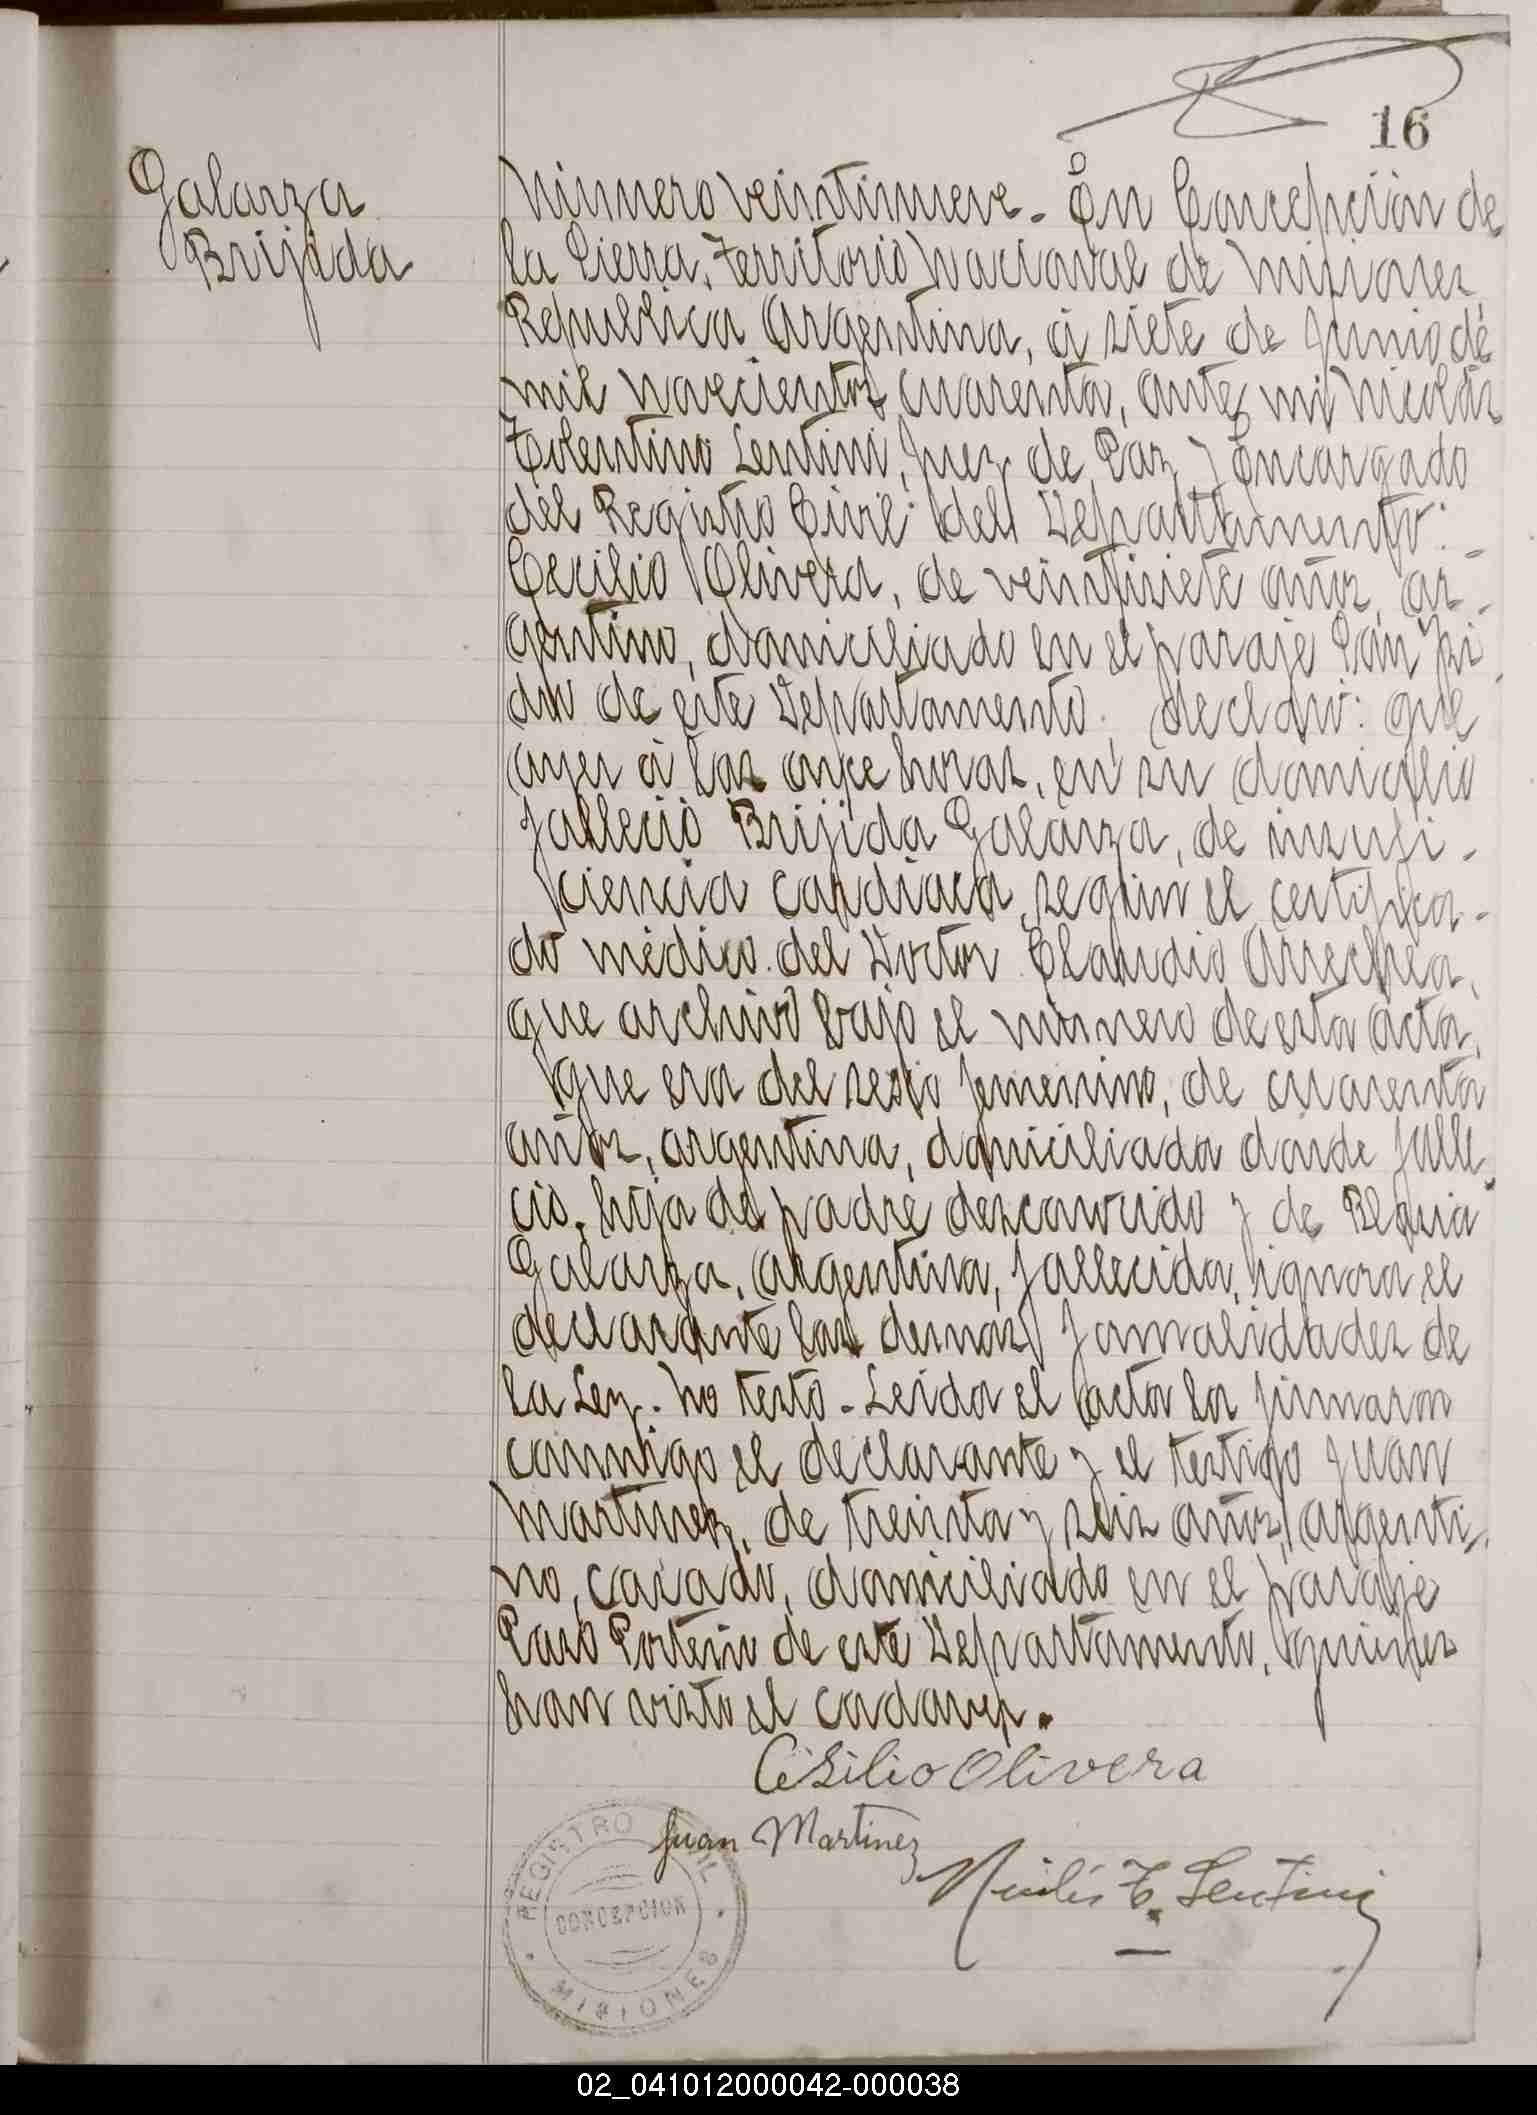 16
Galarza
Brijida
Número veintinueve.- En Concepción de
la Sierra, Territorio Nacional de Misiones,
Republica Argentina, á siete de Junio de
mil novecientos cuarenta, ante mi Nicolás
Tolentino Lentini, Juez de Paz y Encargado
del Registro Civil del Departamento:
Cecilio Olivera, de veintisiete años, ar-
gentino, domiciliado en el paraje San Isi
dro de este Departamento, declaró: que
ayer á las once horas, en su domicilio
falleció Brijida Galarza, de insufi-
ciencia cardiaca, según el certifica-
do médico del Doctor Claudio Arrechea,
que archivo bajo el número de esta acta,
que era del sexo femenino, de cuarenta
años, argentina, domiciliada donde falle
ció, hija de padre desconocido y de
Galarza, argentina, fallecida, ignora el
declarante las demas formalidades de
la Ley. No testó.- Leida el acta la firmaron
conmigo el declarante y el testigo Juan
Martinez, de treinta y seis años, argenti
no, casado, domiciliado en el paraje
Paso Porteño de este Departamento, quienes
han visto el cadaver.
Cisilio Olivera
Juan Martinez
Nicolás T. Lentini
REGISTRO CIVIL
CONCEPCION
MISIONES
02_041012000042-000038